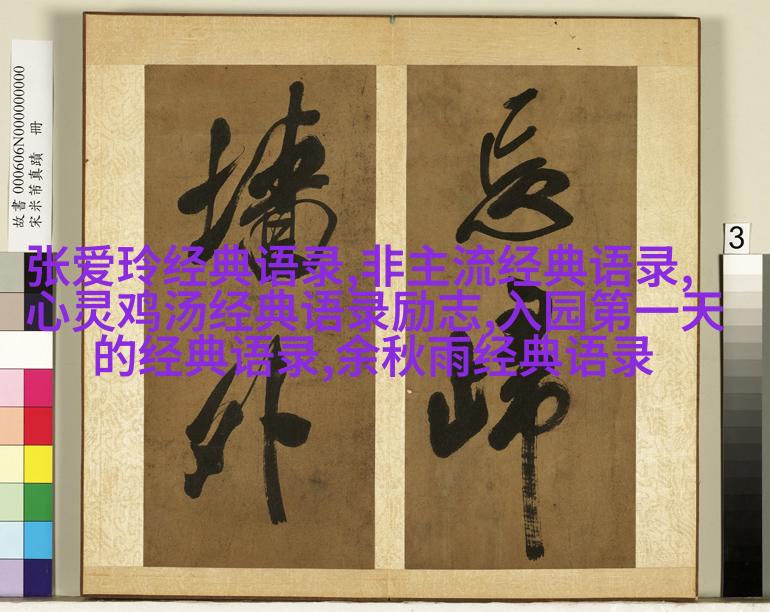 故書 000606N000000000
宋米芾真蹟 冊
忘歸
墻外
张爱玲经典语录,非主流经典语录,
心灵鸡汤经典语录励志,入园第一天
的经典语录,余秋雨经典语录
3